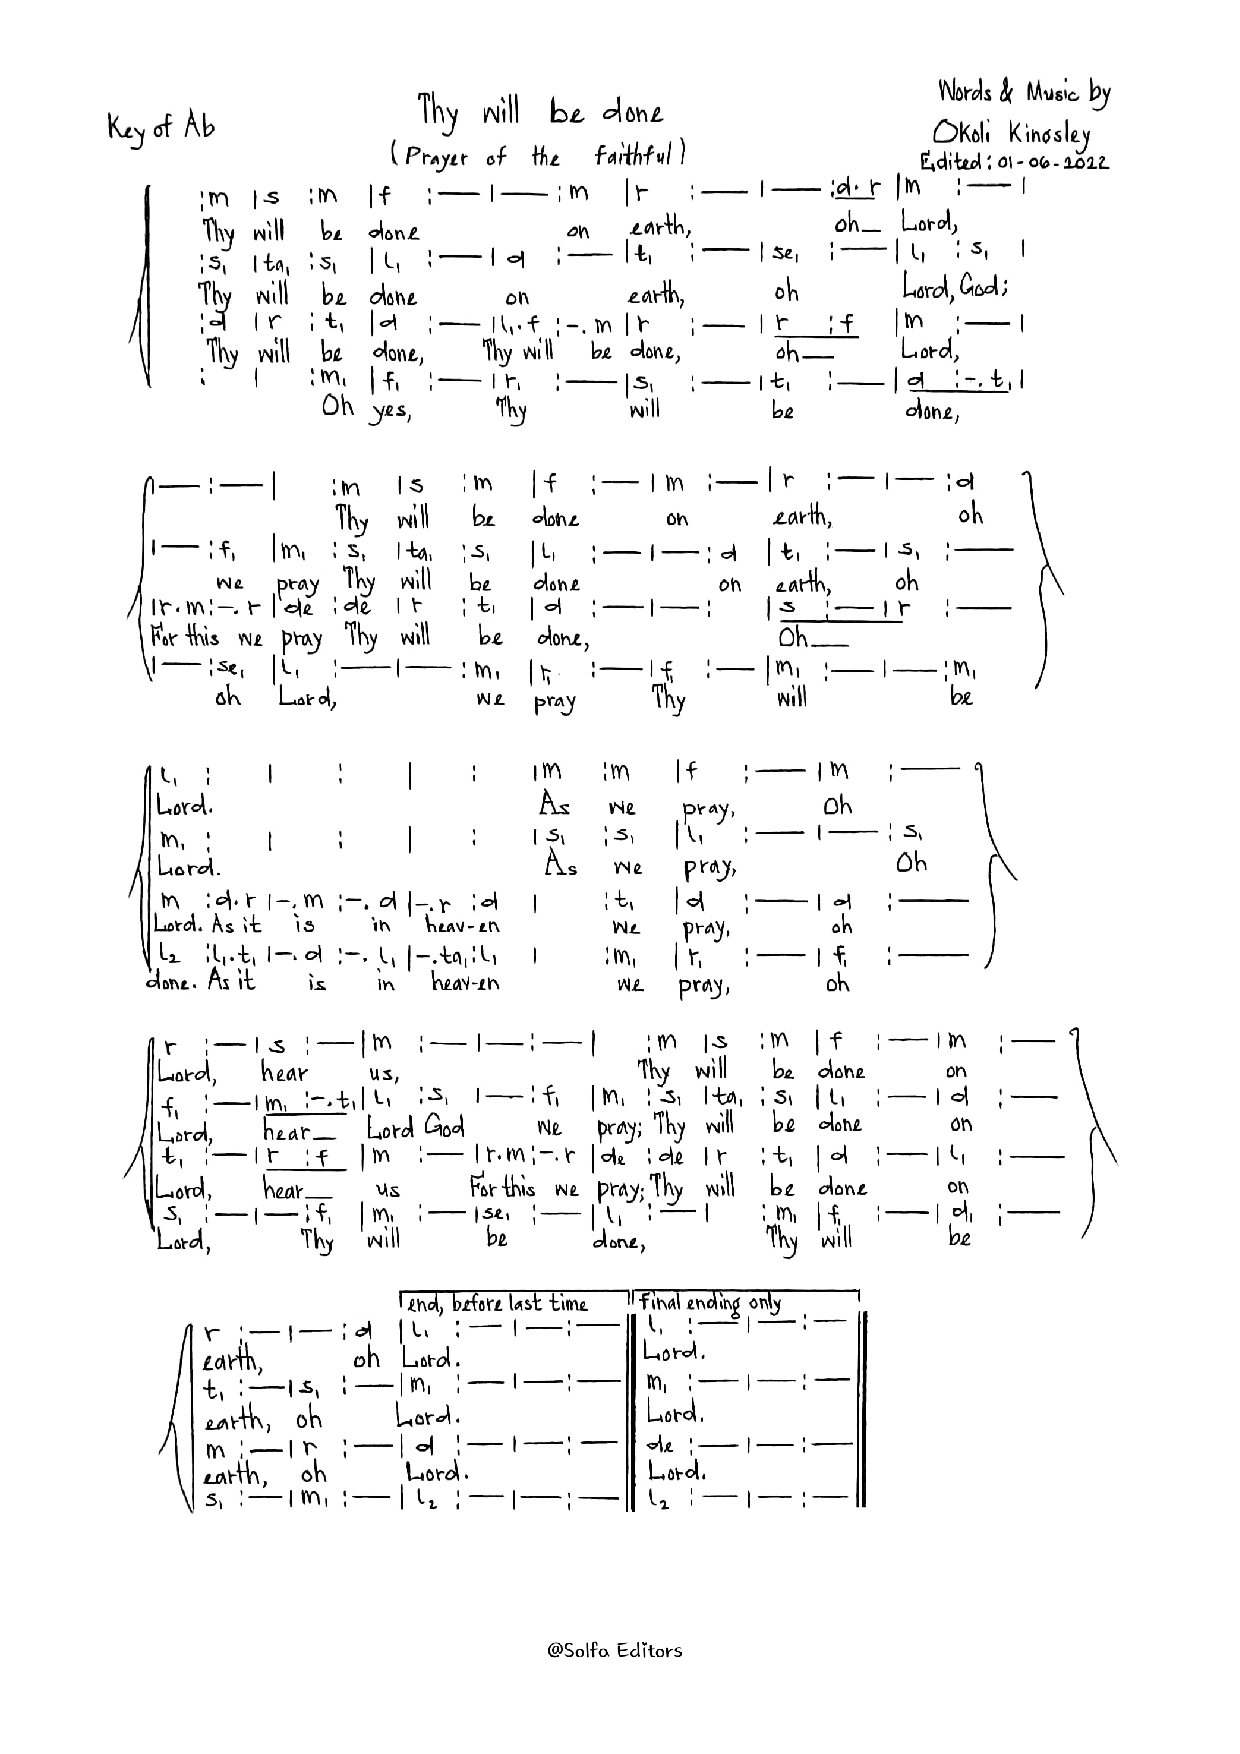 Key of Ab
Thy will be done
(Prayer of the faithful)
Words & Music by
Okoli Kingsley
Edited: 01-06-2022
:m |s :m |f :— |— :m |r :— |— :d.r |m :— |
Thy will be done on earth, oh_ Lord,
:s₁ |ta₁ :s₁ |l₁ :— |d :— |t₁ :— |se₁ :— |l₁ :s₁ |
Thy will be done on earth, oh Lord, God;
:d |r :t₁ |d :— |l₁.f :-.m |r :— |r :f |m :— |
Thy will be done, Thy will be done, oh__ Lord,
: | :m₁ |f₁ :— |r₁ :— |s₁ :— |t₁ :— |d :-.t₁ |
Oh yes, Thy will be done,
|— :— | :m |s :m |f :— |m :— |r :— |— :d
Thy will be done on earth, oh
|— :f₁ |m₁ :s₁ |ta₁ :s₁ |l₁ :— |— :d |t₁ :— |s₁ :—
we pray Thy will be done on earth, oh
|r.m :-.r |de :de |r :t₁ |d :— |— : |s :— |r :—
For this we pray Thy will be done, Oh__
|— :se₁ |l₁ :— |— :m₁ |r₁ :— |f₁ :— |m₁ :— |— :m₁
oh Lord, we pray Thy will be
l₁ : | : | : |m :m |f :— |m :—
Lord. As we pray, Oh
m₁ : | : | : |s₁ :s₁ |l₁ :— |— :s₁
Lord. As we pray, Oh
m :d.r |-.m :-.d |-.r :d | :t₁ |d :— |d :—
Lord. As it is in heav-en we pray, oh
l₂ :l₁.t₁ |-.d :-.l₁ |-.ta₁ :l₁ | :m₁ |r₁ :— |f₁ :—
done. As it is in heav-en we pray, oh
r :— |s :— |m :— |— :— | :m |s :m |f :— |m :—
Lord, hear us, Thy will be done on
f₁ :— |m₁ :-.t₁ |l₁ :s₁ |— :f₁ |m₁ :s₁ |ta₁ :s₁ |l₁ :— |d :—
Lord, hear_ Lord God we pray; Thy will be done on
t₁ :— |r :f |m :— |r.m :-.r |de :de |r :t₁ |d :— |l₁ :—
Lord, hear__ us For this we pray; Thy will be done on
s₁ :— |— :f₁ |m₁ :— |se₁ :— |l₁ :— | :m₁ |f₁ :— |d₁ :—
Lord, Thy will be done, Thy will be
end, before last time
final ending only
r :— |— :d |l₁ :— |— :— l₁ :— |— :—
earth, oh Lord. Lord.
t₁ :— |s₁ :— |m₁ :— |— :— m₁ :— |— :—
earth, oh Lord. Lord.
m :— |r :— |d :— |— :— de :— |— :—
earth, oh Lord. Lord.
s₁ :— |m₁ :— |l₂ :— |— :— l₂ :— |— :—
@Solfa Editors